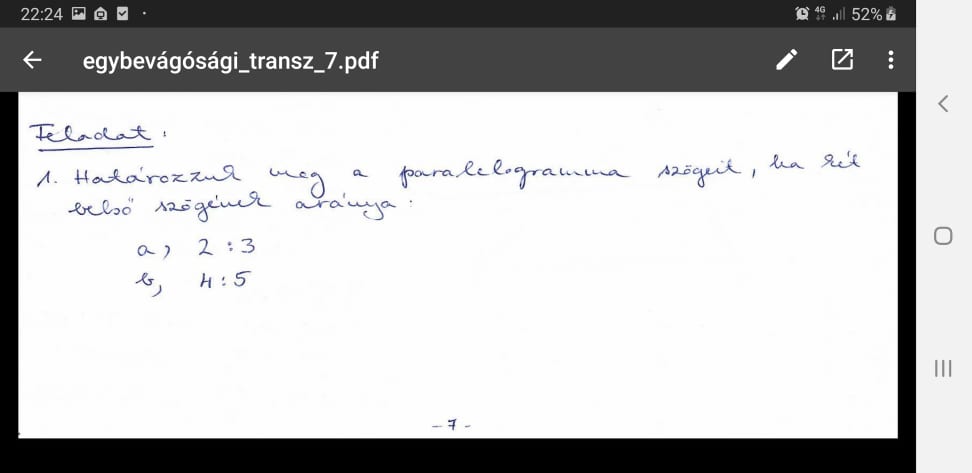 22:24
4G 52%
egybevágósági_transz_7.pdf
Feladat:
1. Határozzuk meg a paralelogramma szögeit, ha két
belső szögének aránya:
a) 2:3
b, 4:5
-7-